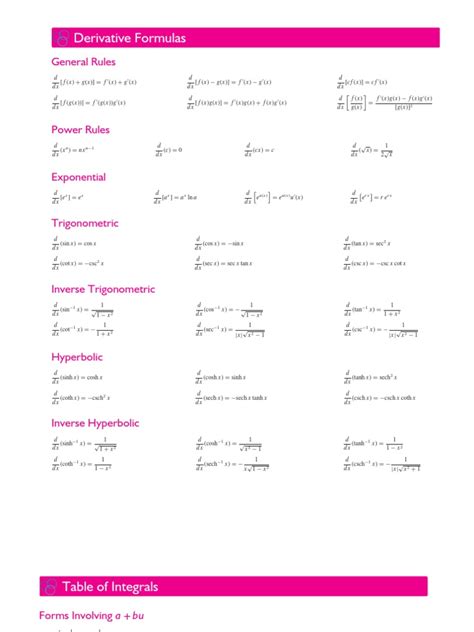 Derivative Formulas
General Rules
d/dx [f(x) + g(x)] = f′(x) + g′(x)   d/dx [f(x) − g(x)] = f′(x) − g′(x)   d/dx [cf(x)] = cf′(x)
d/dx [f(g(x))] = f′(g(x))g′(x)   d/dx [f(x)g(x)] = f′(x)g(x) + f(x)g′(x)   d/dx [f(x)/g(x)] = f′(x)g(x) − f(x)g′(x)/[g(x)]²
Power Rules
d/dx (xⁿ) = nxⁿ⁻¹   d/dx (c) = 0   d/dx (cx) = c   d/dx (√x) = 1/2√x
Exponential
d/dx [eˣ] = eˣ   d/dx [aˣ] = aˣ ln a   d/dx [e^u(x)] = e^u(x) u′(x)   d/dx [e^rx] = r e^rx
Trigonometric
d/dx (sin x) = cos x   d/dx (cos x) = −sin x   d/dx (tan x) = sec² x
d/dx (cot x) = −csc² x   d/dx (sec x) = sec x tan x   d/dx (csc x) = −csc x cot x
Inverse Trigonometric
d/dx (sin⁻¹ x) = 1/√1 − x²   d/dx (cos⁻¹ x) = − 1/√1 − x²   d/dx (tan⁻¹ x) = 1/1 + x²
d/dx (cot⁻¹ x) = − 1/1 + x²   d/dx (sec⁻¹ x) = 1/|x|√x² − 1   d/dx (csc⁻¹ x) = − 1/|x|√x² − 1
Hyperbolic
d/dx (sinh x) = cosh x   d/dx (cosh x) = sinh x   d/dx (tanh x) = sech² x
d/dx (coth x) = −csch² x   d/dx (sech x) = −sech x tanh x   d/dx (csch x) = −csch x coth x
Inverse Hyperbolic
d/dx (sinh⁻¹ x) = 1/√1 + x²   d/dx (cosh⁻¹ x) = 1/√x² − 1   d/dx (tanh⁻¹ x) = 1/1 − x²
d/dx (coth⁻¹ x) = 1/1 − x²   d/dx (sech⁻¹ x) = − 1/x√1 − x²   d/dx (csch⁻¹ x) = − 1/|x|√x² + 1
Table of Integrals
Forms Involving a + bu